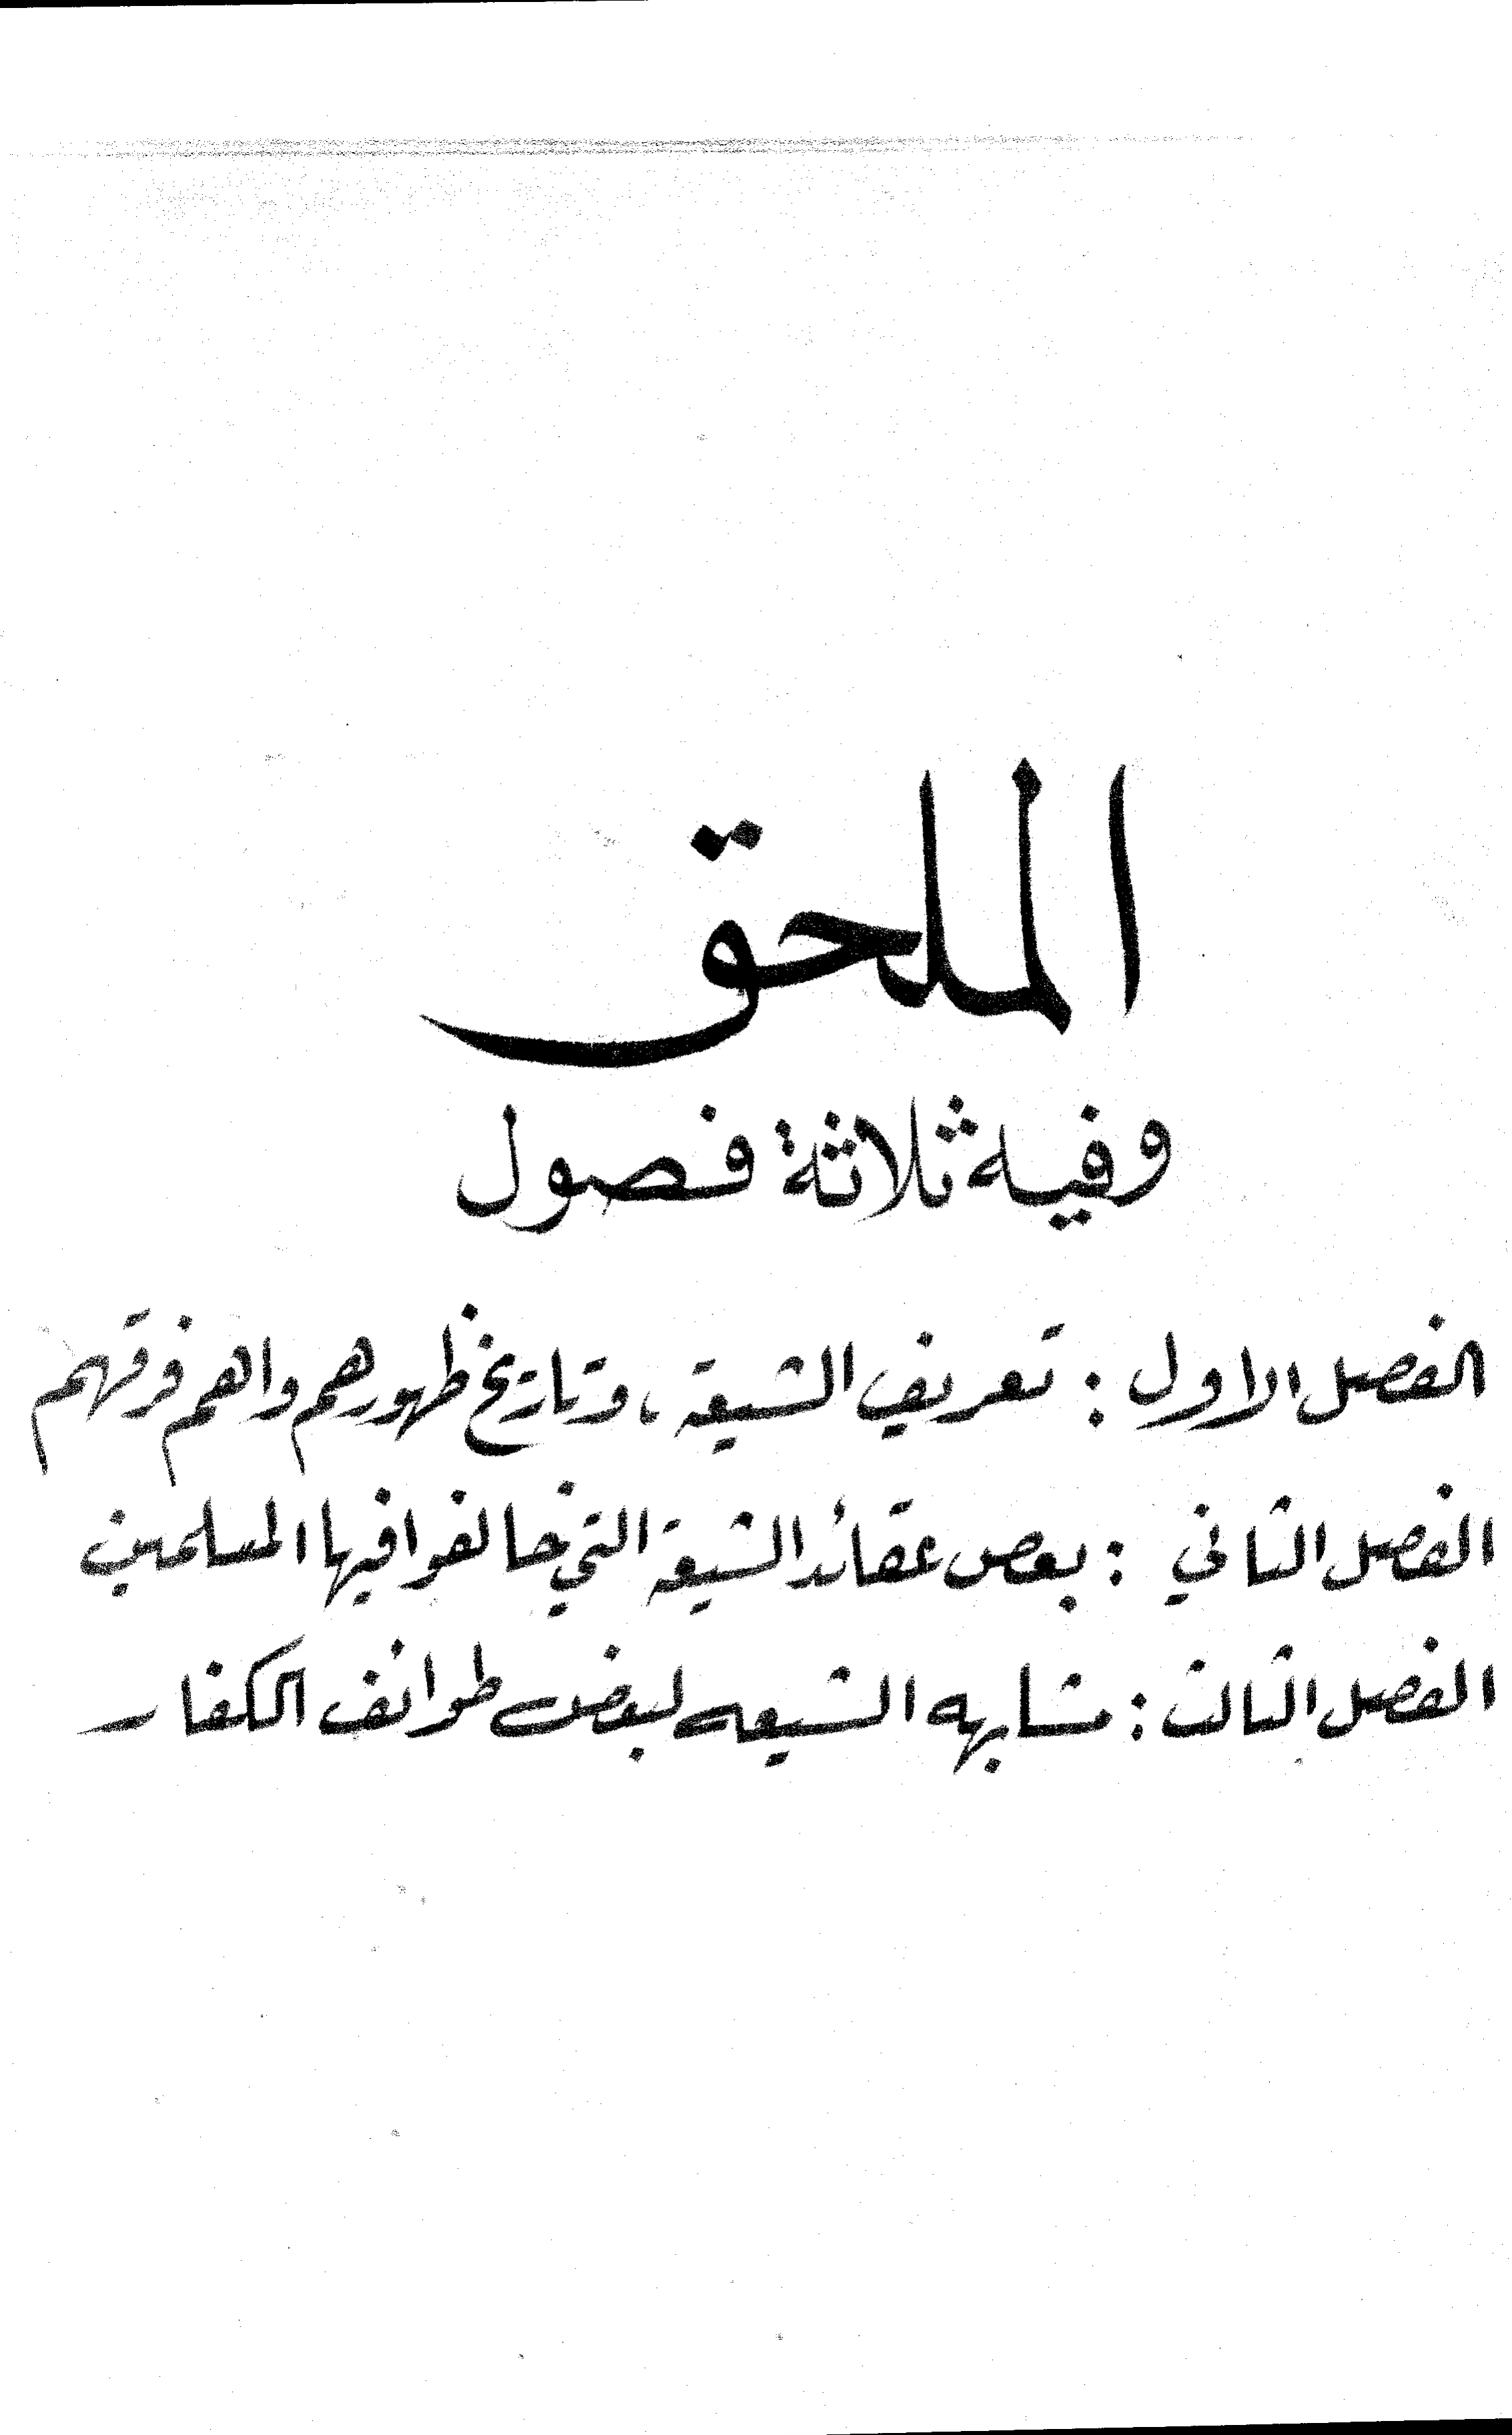 الملحق
وفيه ثلاثة فصول
الفصل الاول : تعريف الشيعة ، وتاريخ ظهورهم واهم فرقهم
الفصل الثاني : بعض عقائد الشيعة التي خالفوا فيها المسلمين
الفصل الثالث : مشابهه الشيعه لبعض طوائف الكفار